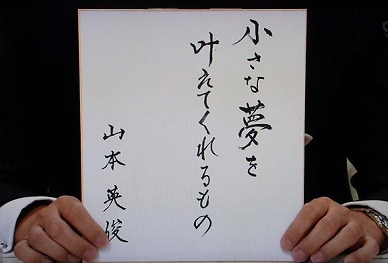 小さな夢を
叶えてくれるもの
山本英俊